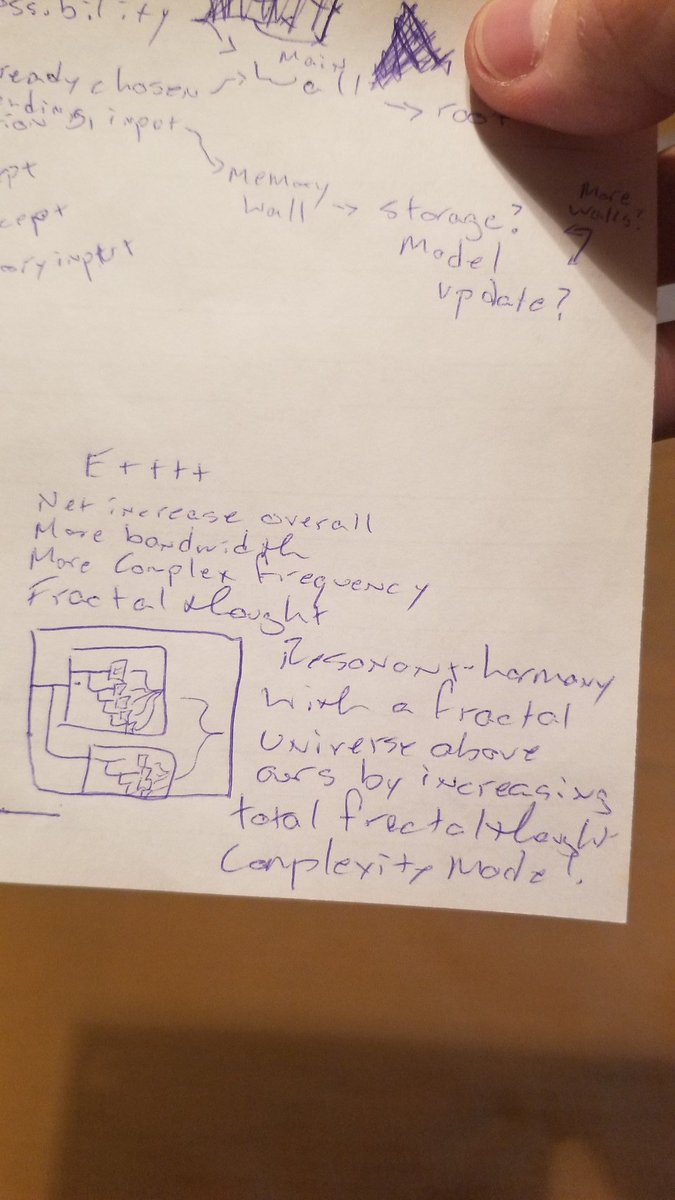 ssibility
Main
ready chosen → Wall
→ root
input
Memory
Wall → storage?
Model
update?
More
walls?
cept
ory input
E++++
Net increase overall
More bandwidth
More Complex frequency
Fractal thought
Resonant-harmony
with a fractal
Universe above
ours by increasing
total fractal thought
Complexity Mode?.